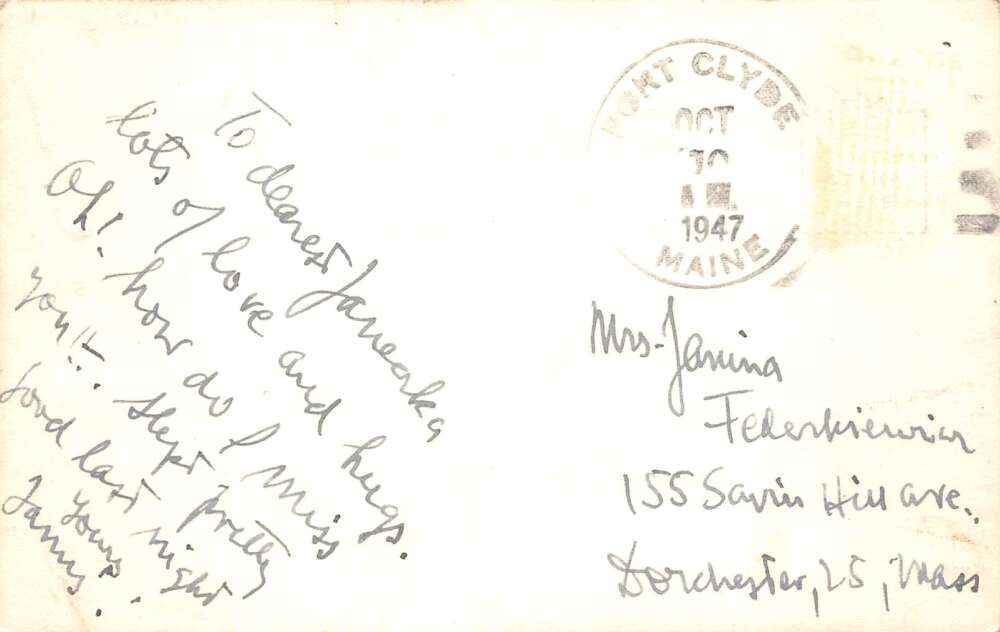 To dearest Janeczka
lots of love and hugs.
Oh! how do I miss
you!!. Slept pretty
good last night
Yours
PORT CLYDE
OCT
10
A.M.
1947
MAINE
Mrs. Janina
Federkiewicz
155 Savin Hill ave.
Dorchester, 25, Mass